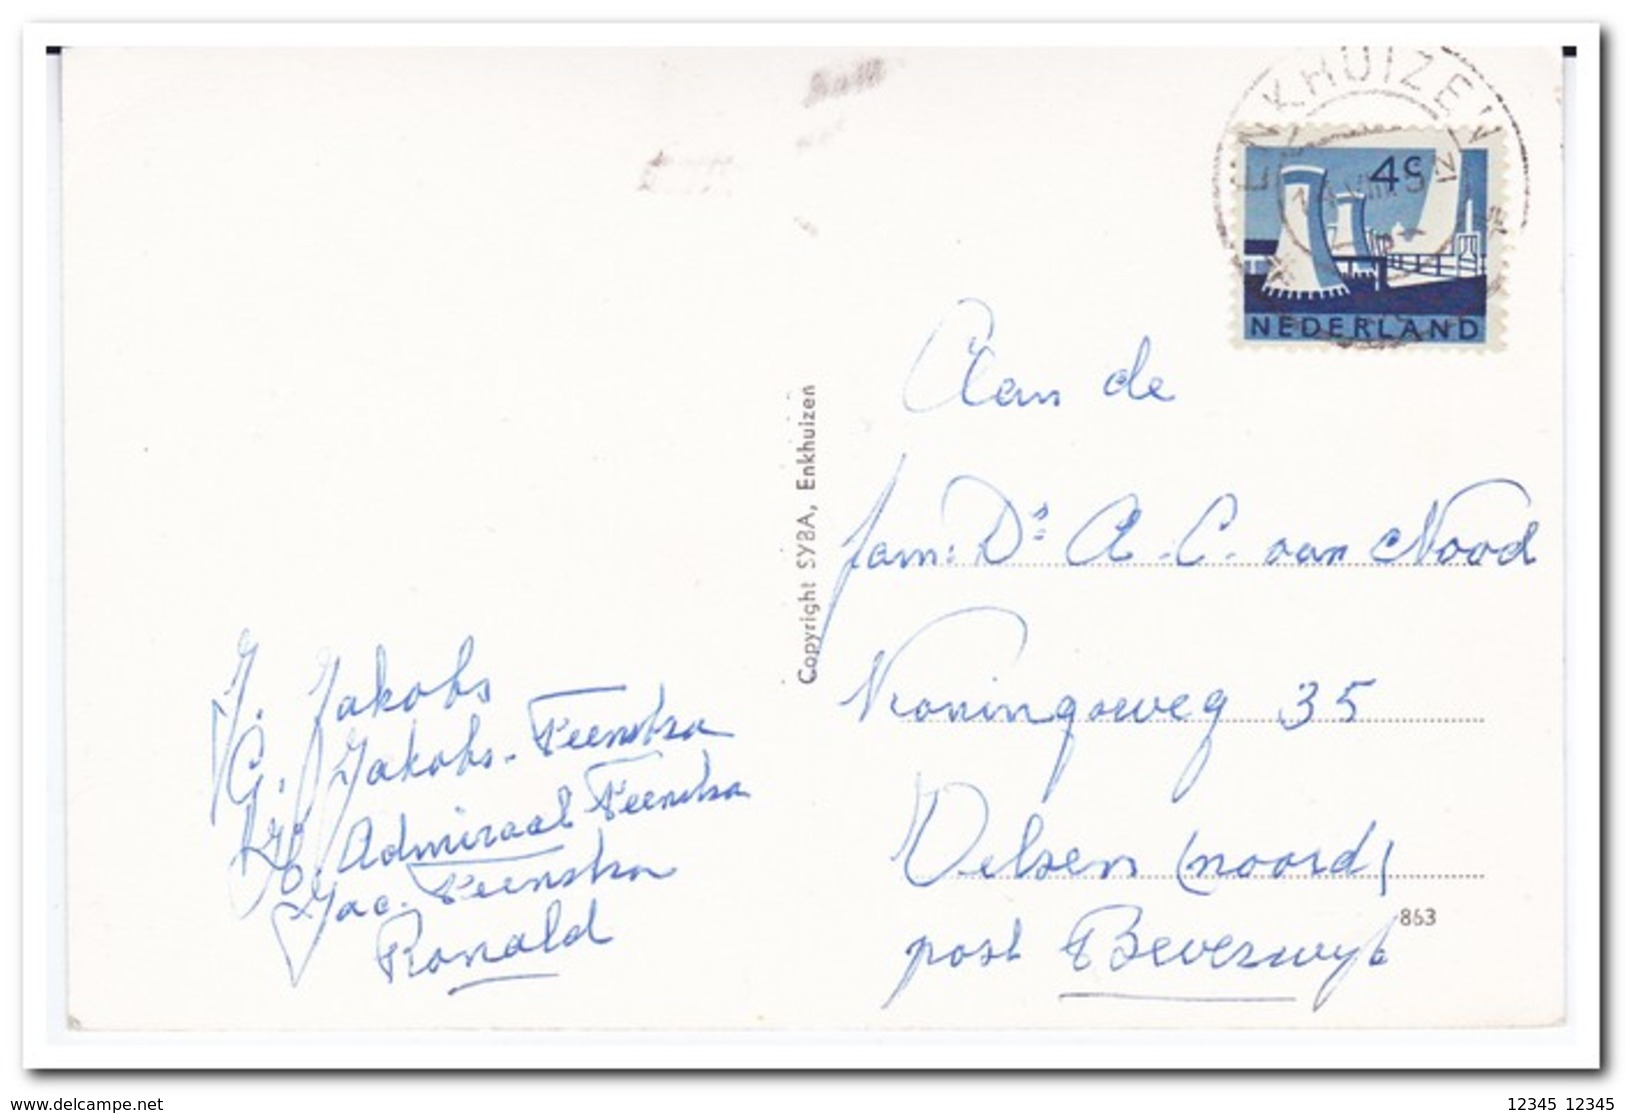 ENKHUIZEN
4c
NEDERLAND
Aan de
fam: Ds A. C. van Nood
Koningsweg 35
Velsen (noord)
post Beverwijk
863
Copyright SYBA, Enkhuizen
J. Jakobs
G. Jakobs-Feenstra
Admiraal Feenstra
Jac. Feenstra
Ronald
www.delcampe.net
12345 12345